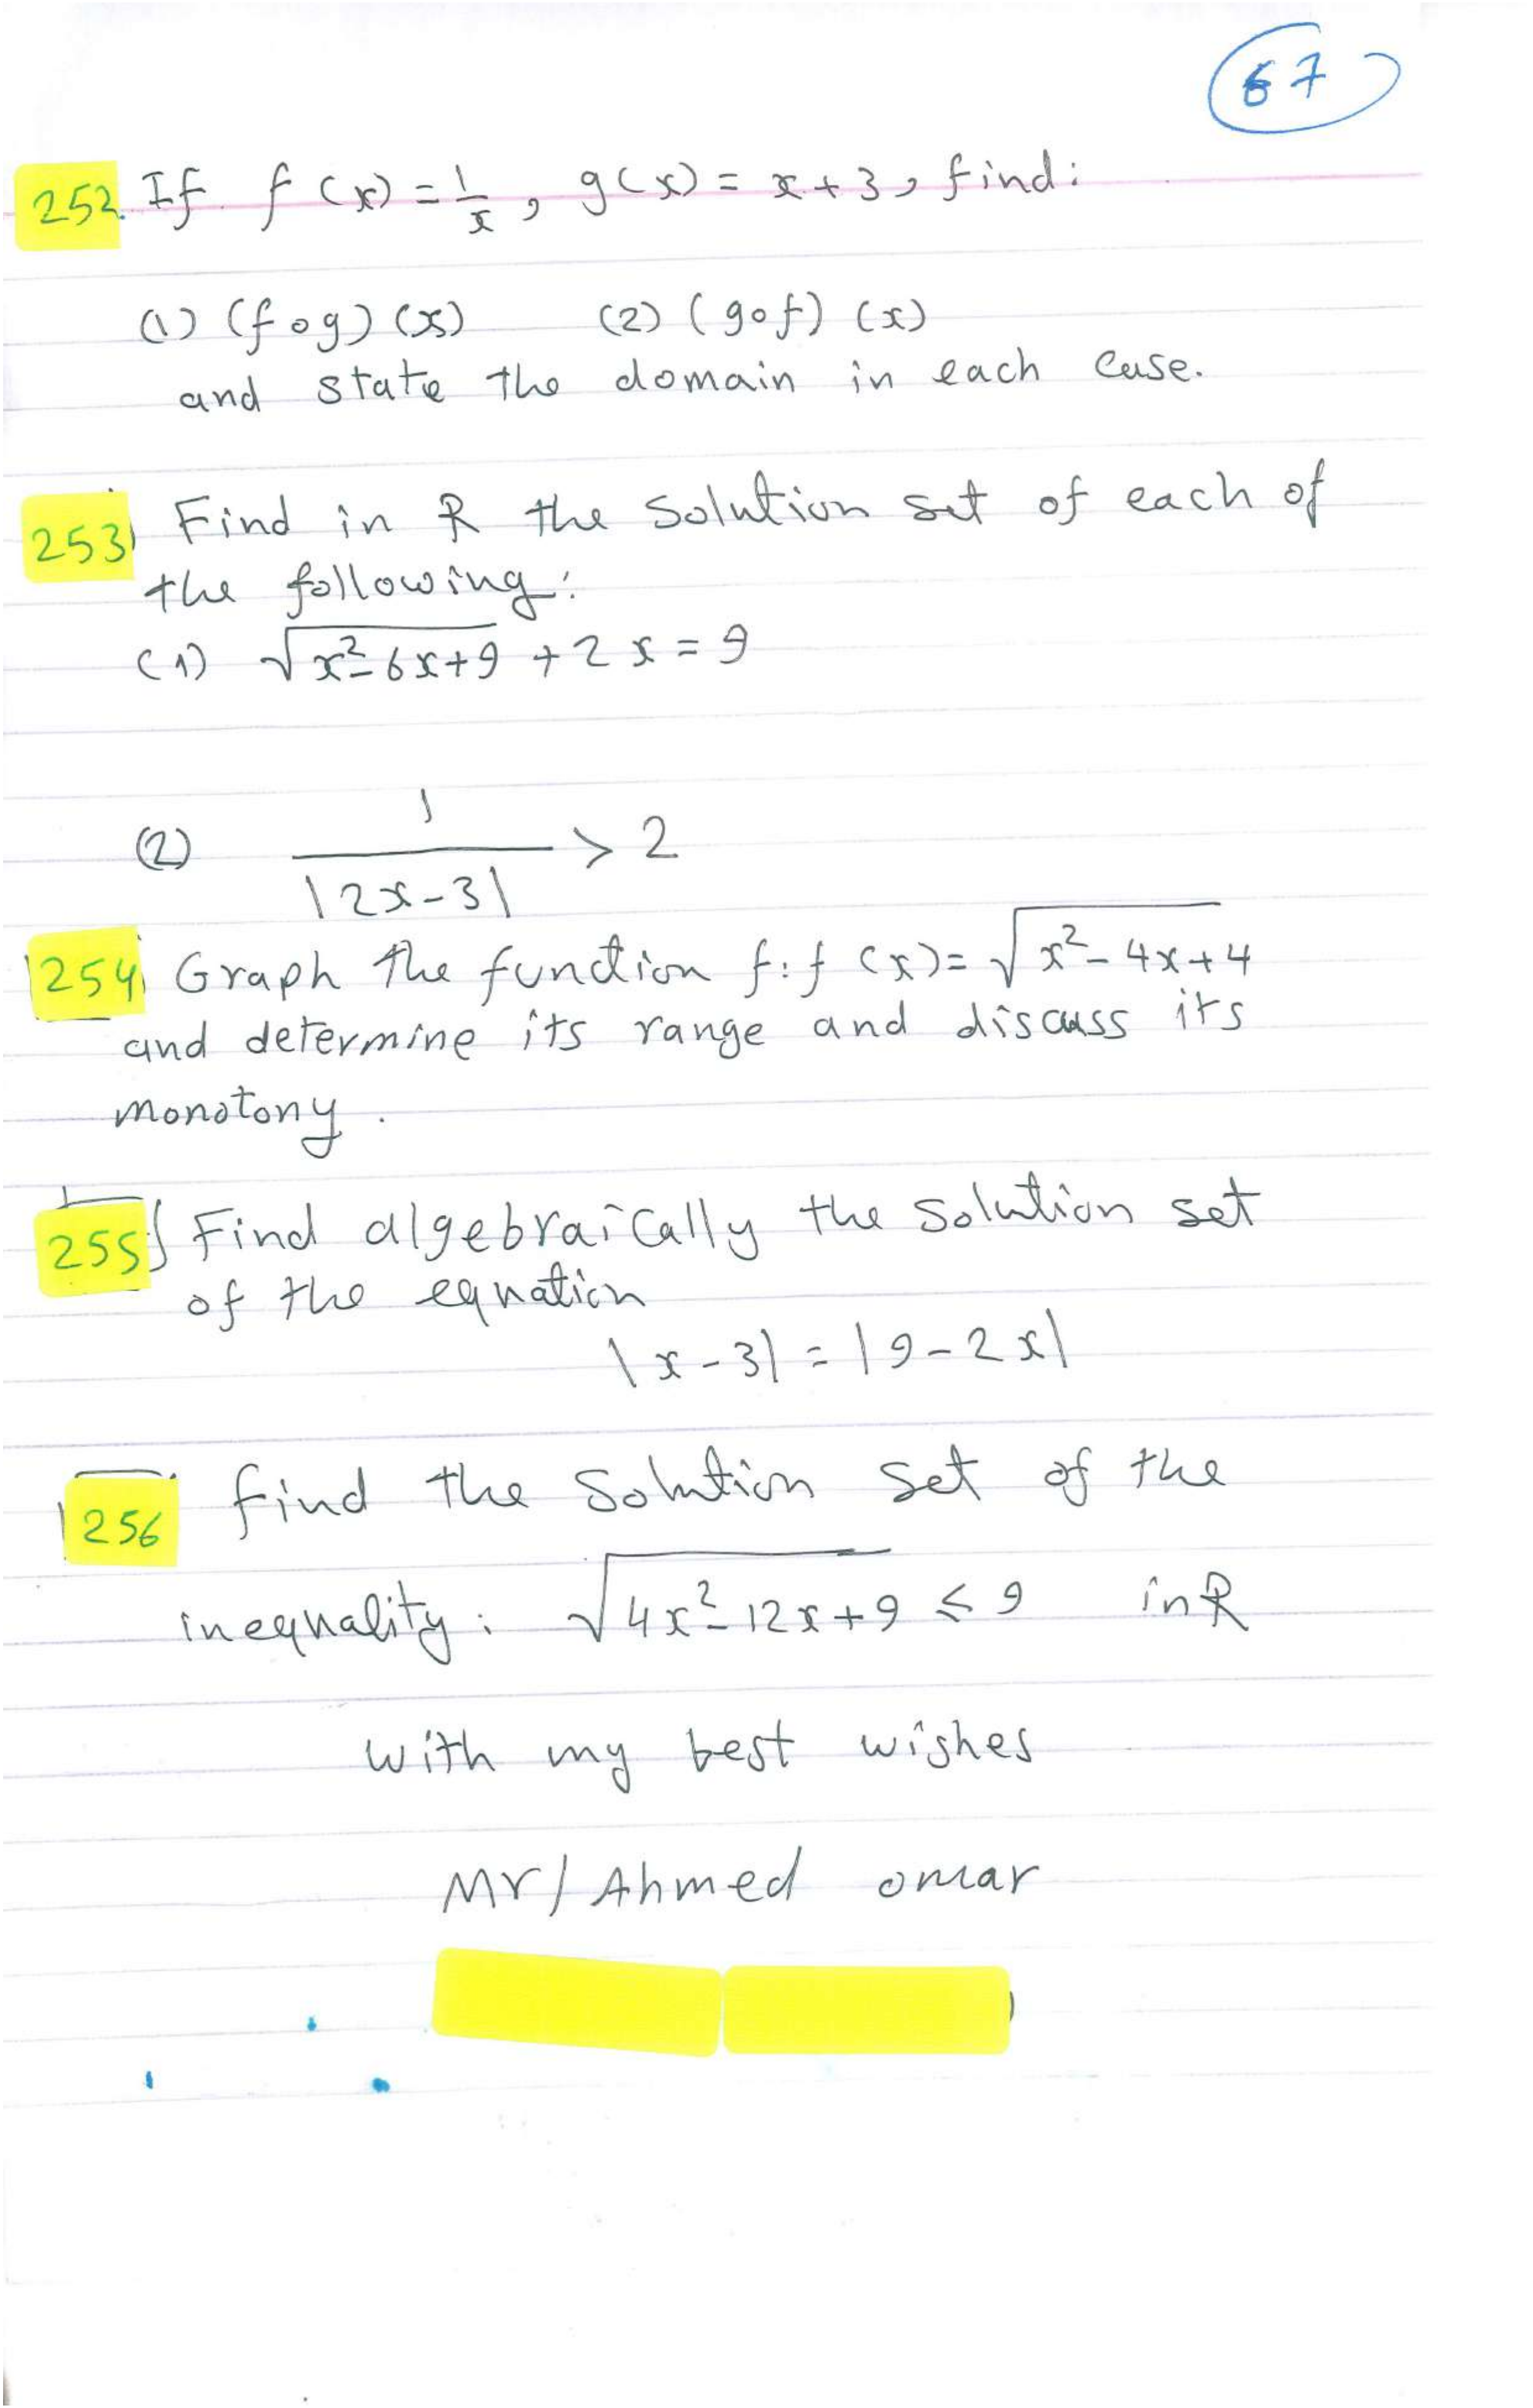 67
252. If f(x) = 1/x, g(x) = x+3, find:
(1) (fog)(x) (2) (gof)(x)
and state the domain in each case.
253) Find in R the solution set of each of
the following:
(1) √(x²-6x+9) + 2x = 9
(2) 1/|2x-3| > 2
254) Graph the function f: f(x) = √(x²-4x+4)
and determine its range and discuss its
monotony.
255) Find algebraically the solution set
of the equation
|x-3| = |9-2x|
256 find the solution set of the
inequality: √(4x²-12x+9) ≤ 9 in R
with my best wishes
Mr/ Ahmed omar